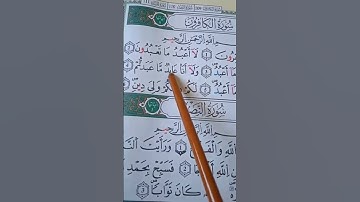 سُورَةُ الْكَافِرُونَ
اللَّهِ الرَّحْمَٰنِ الرَّحِيمِ
لَا أَعْبُدُ مَا تَعْبُدُونَ ٢
أَعْبُدُ ٣ وَلَا أَنَا عَابِدٌ مَّا عَبَدتُّمْ ٤
أَعْبُدُ ٥ لَكُمْ دِينُكُمْ وَلِيَ دِينِ ٦
سُورَةُ النَّصْرِ
اللَّهِ الرَّحْمَٰنِ الرَّحِيمِ
اللَّهِ وَالْفَتْحُ ١ وَرَأَيْتَ
اللَّهِ ٢ فَسَبِّحْ بِحَمْدِ
كَانَ تَوَّابًا ٣